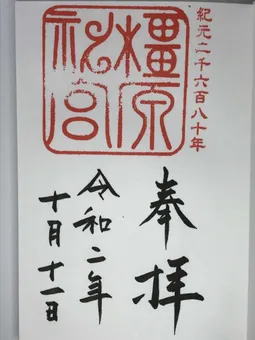 紀元二千六百八十年
橿原神宮
奉拝
令和二年
十月十一日